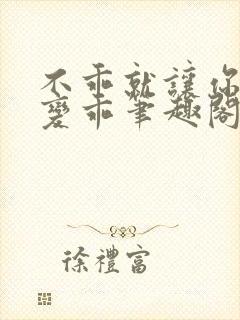 不乖就讓你
變乖筆趣閣
徐禮富